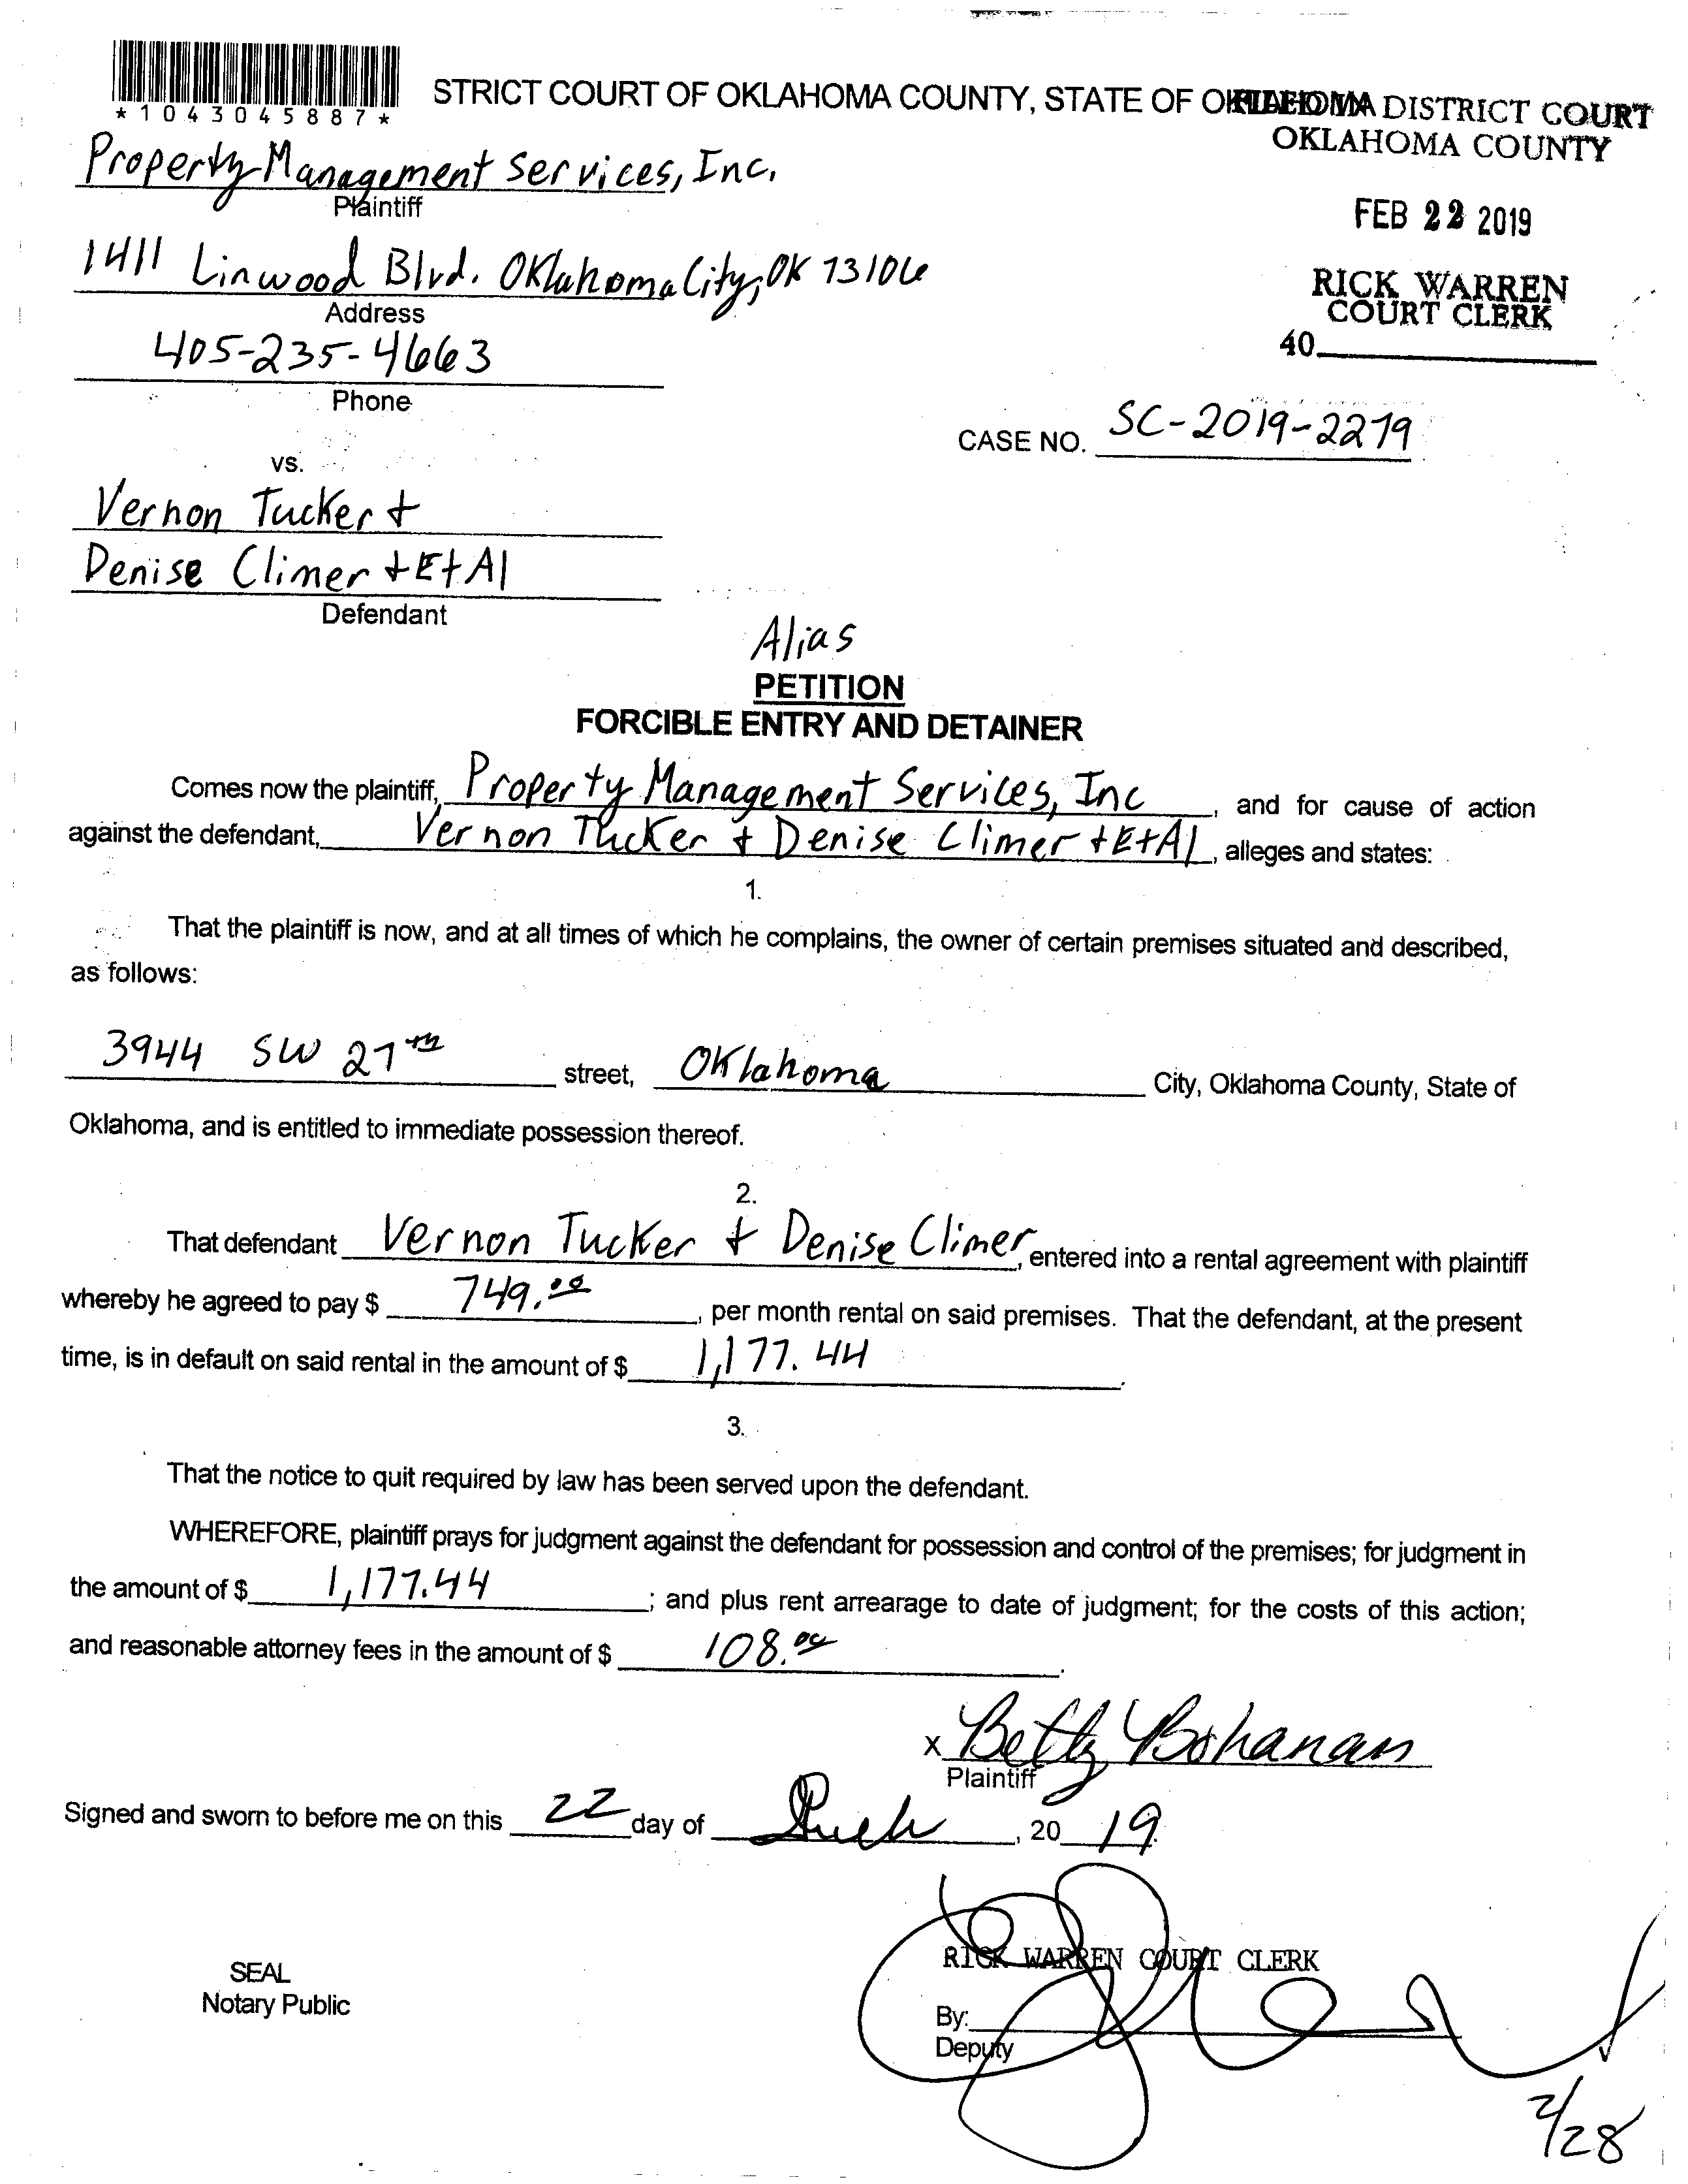 *1043045887*
STRICT COURT OF OKLAHOMA COUNTY, STATE OF OKLAHOMA
FILED IN DISTRICT COURT
OKLAHOMA COUNTY
Property Management Services, Inc.
Plaintiff
FEB 22 2019
1411 Linwood Blvd. Oklahoma City, OK 73106
Address
RICK WARREN
COURT CLERK
40
405-235-4663
Phone
CASE NO. SC-2019-2279
vs.
Vernon Tucker +
Denise Climer + Et Al
Defendant
Alias
PETITION
FORCIBLE ENTRY AND DETAINER
Comes now the plaintiff, Property Management Services, Inc, and for cause of action
against the defendant, Vernon Tucker + Denise Climer + Et Al, alleges and states:
1.
That the plaintiff is now, and at all times of which he complains, the owner of certain premises situated and described,
as follows:
3944 SW 27th street, Oklahoma City, Oklahoma County, State of
Oklahoma, and is entitled to immediate possession thereof.
2.
That defendant Vernon Tucker + Denise Climer, entered into a rental agreement with plaintiff
whereby he agreed to pay $ 749.00, per month rental on said premises. That the defendant, at the present
time, is in default on said rental in the amount of $ 1,177.44.
3.
That the notice to quit required by law has been served upon the defendant.
WHEREFORE, plaintiff prays for judgment against the defendant for possession and control of the premises; for judgment in
the amount of $ 1,177.44; and plus rent arrearage to date of judgment; for the costs of this action;
and reasonable attorney fees in the amount of $ 108.00.
x Betty Bohanan
Plaintiff
Signed and sworn to before me on this 22 day of , 20 19
RICK WARREN COURT CLERK
SEAL
Notary Public
By:
Deputy
2/28